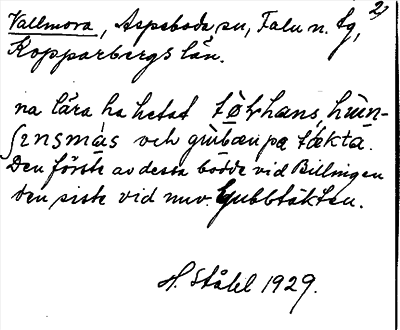 2)
Vallmora, Aspeboda sn, Falu n. tg,
Kopparbergs län.
na lära ha hetat tø̀t̬hans, hùn-
ʃɪnsmás och gùbæn på tǽkta.
Den förste av dessa bodde vid Billingen
den siste vid nuv. Gubbtäkten.
H. Ståhl 1929.